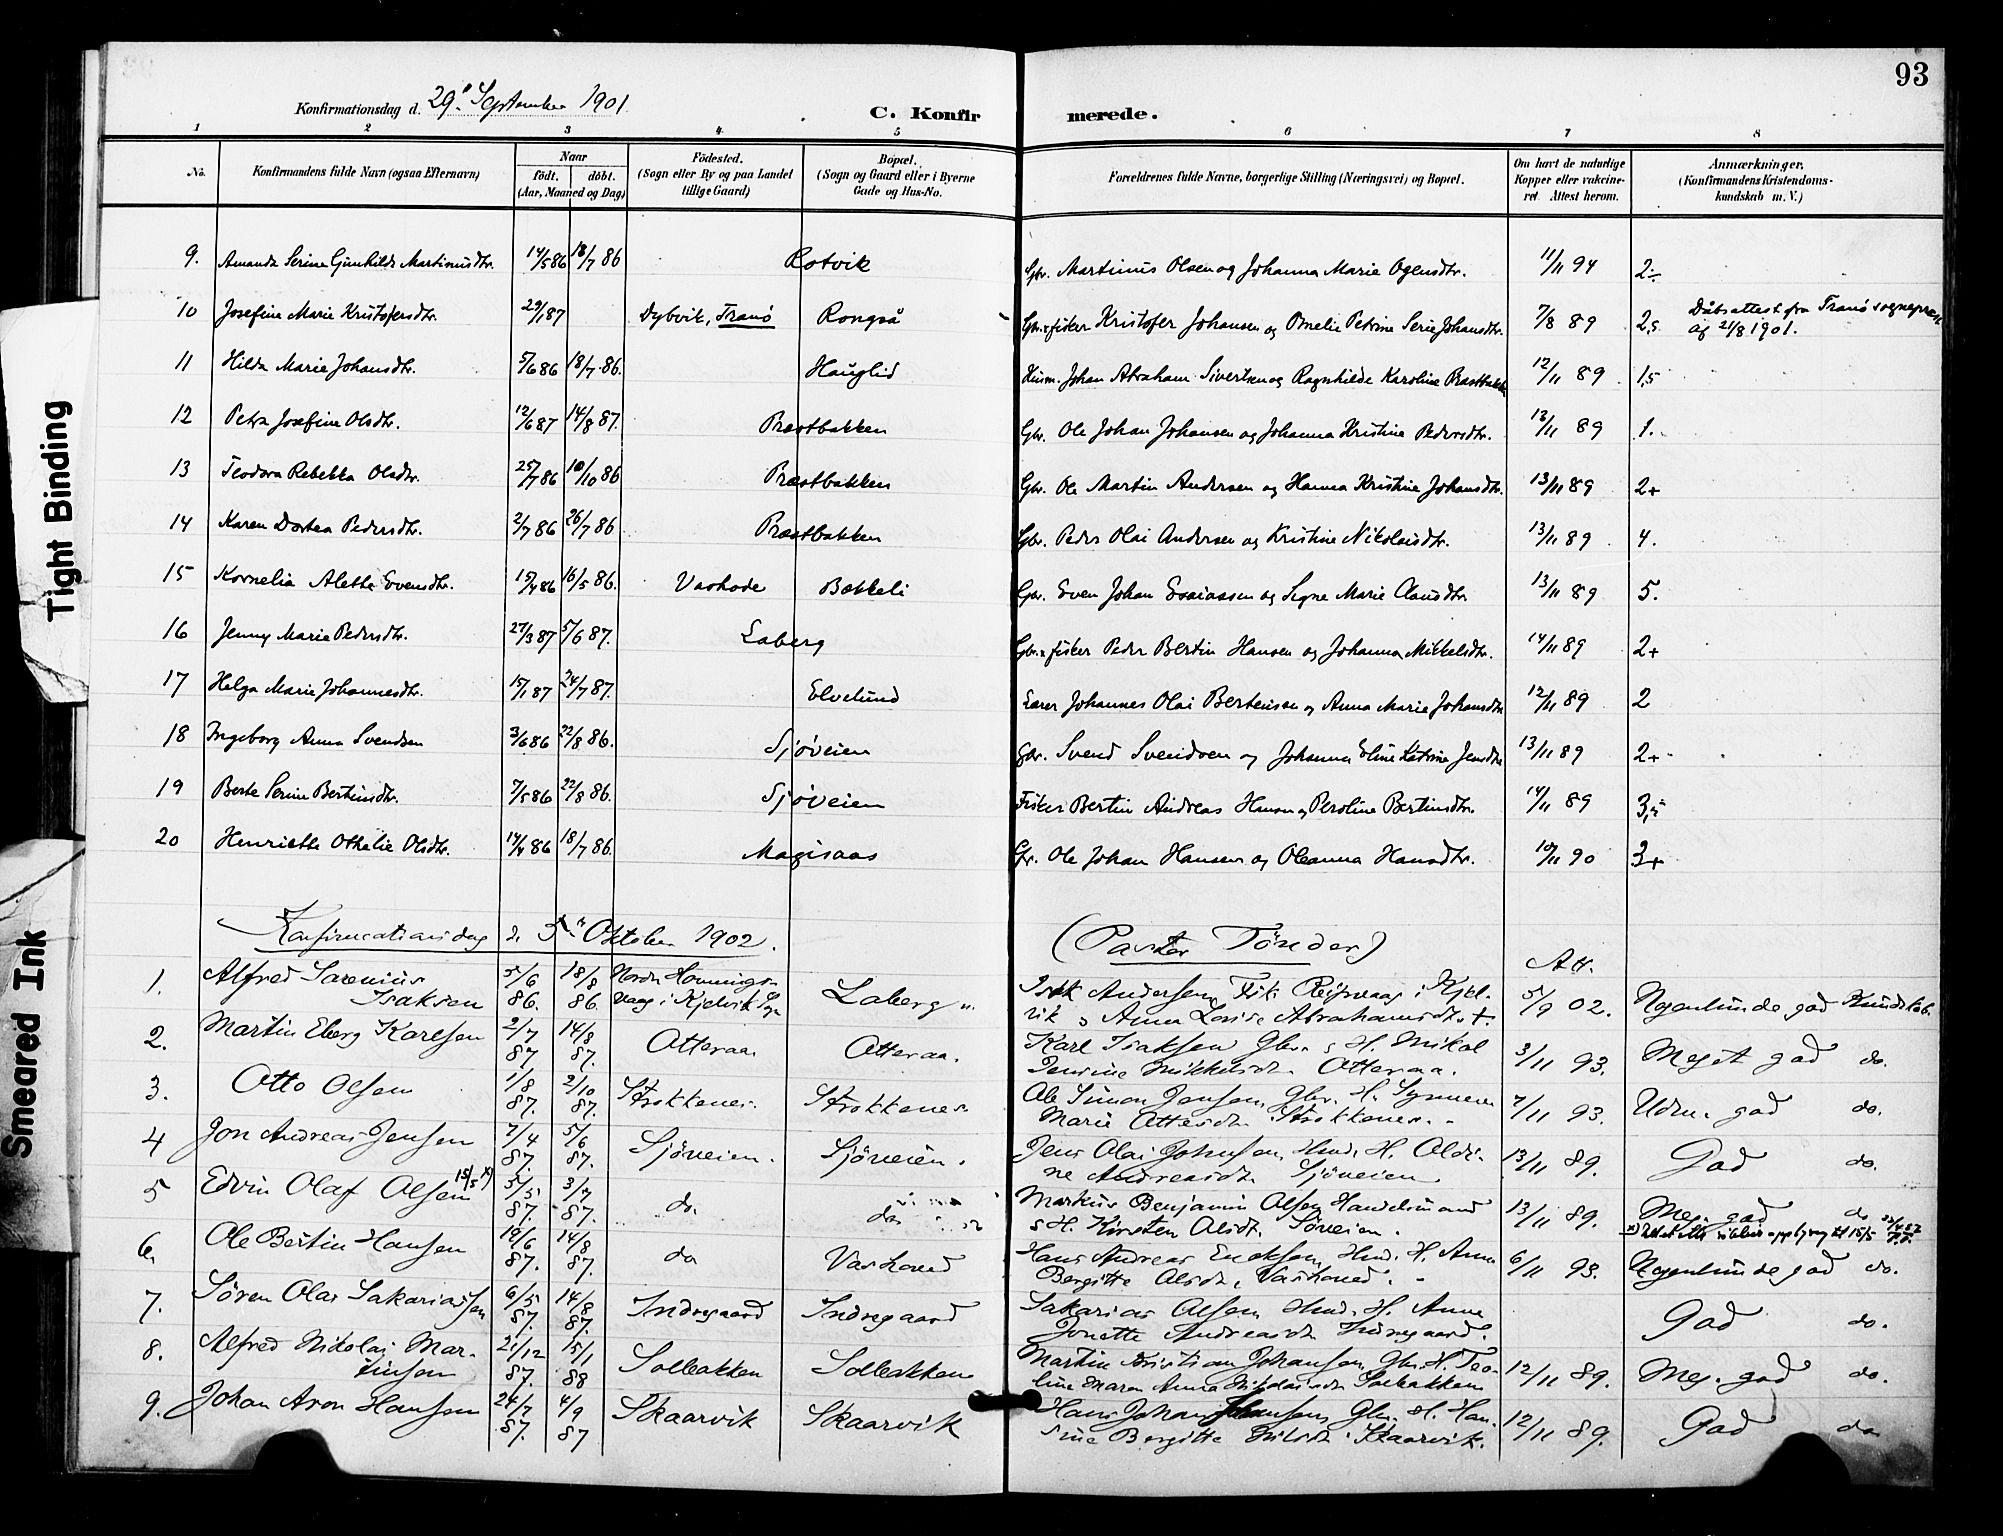 93
Konfirmationsdag d. 29. September 1901.
C. Konfirmerede.
1 2 3 4. 5 6 7 8
No. Konfirmandens fulde Navn (ogsaa Efternavn) Naar födt. döbt. (Aar, Maaned og Dag) Födested. (Sogn eller By og paa Landet tillige Gaard) Bopæl. (Sogn og Gaard eller i Byerne Gade og Hus-No. Forældrenes fulde Navne, borgerlige Stilling (Næringsvei) og Bopæl. Om havt de naturlige Kopper eller vakcineret. Attest herom. Anmærkninger. (Konfirmandens Kristendomskundskab m. V.)
9. Amanda Serine Gunhilda Martinusdtr. 14/5 86 18/7 86 Rotvik Gbr. Martinus Olsen og Johanna Marie Ogensdtr. 11/11 94 2÷
10 Josefine Marie Kristofersdtr. 29/1 87 Dybvik, Tranö Rongså Gbr. & fisker Kristofer Johansen og Omelie Petrine Serie Johansdtr. 7/8 89 2,5 Dåbsattest fra Tranö sognepræst af 21/8 1901.
11 Hilda Marie Johansdtr. 5/6 86 18/7 86. Hauglid Husm. Johan Abraham Sivertsen og Ragnhilde Karoline Præstbakken 12/11 89 1,5
12 Petra Josefine Olsdtr. 12/6 87 14/8 87. Præstbakken Gbr. Ole Johan Johansen og Johanna Kristine Pedersdtr. 13/11 89 1.
13 Teodora Rebekka Olsdtr. 25/7 86 10/10 86 Præstbakken Gbr. Ole Martin Andersen og Hanna Kristine Johansdtr. 13/11 89 2+
14 Karen Dortea Pedersdtr. 2/7 86 26/7 86 Præstbakken Gbr. Peder Olai Andersen og Kristine Nikolaisdtr. 13/11 89 4.
15 Kornelia Aletta Evensdtr. 15/4 86 16/5 86. Vashode Bækkeli Gbr. Even Johan Esaiassen og Signe Marie Clausdtr. 13/11 89 5.
16 Jenny Marie Pedersdtr. 27/3 87 5/6 87. Laberg Gbr. & fisker Peder Bertin Hansen og Johanna Mikkelsdtr. 14/11 89 2+
17 Helga Marie Johannesdtr. 15/1 87 24/7 87. Elvelund Lærer Johannes Olai Berteussen og Anna Marie Johansdtr 12/11 89 2
18 Ingeborg Anna Svendsen 3/6 86 22/8 86. Sjøveien Gbr. Svend Svendsen og Johanna Eline Katrine Jensdtr 13/11 89 2+
19 Berte Serine Bertinsdtr. 7/5 86 22/8 86. Sjøveien Fisker Bertin Andreas Hansen og Peroline Bertinsdtr. 14/11 89 3,÷
20 Henriette Othelie Olsdtr. 14/4 86 18/7 86. Magisaas Gbr. Ole Johan Hansen og Oleanna Hansdtr. 10/11 90 3+
Konfirmationsdag d. 5. Oktober 1902. (Pastor Tönder) Att.
1. Alfred Sarenius Isaksen 5/6 86. 18/8 86. Nordre Honningsvaag i Kjelvik Sogn Laberg Isak Andersen, Fisk. Reipvaag i Kjelvik & Anna Lovise Abrahamsdt. +. 5/9 02. Nogenlunde god Kundskab.
2. Martin Eberg Karlsen 2/7 87 14/8 87. Otteraa. Otteraa. Karl Isaksen Gbr. & H. Mikal Penrine Mikkelsdt. Otteraa. 3/11 93. Meget god do.
3. Otto Olsen 1/8 87. 2/10 87. Strokkenes. Strokkenes Ole Simon Jensen, Gbr. H. Synneve Marie Ottesdt. Strokkenes. 7/11 93. Udm. god do.
4 Jon Andreas Jensen 7/4 87. 5/6 87. Sjöveien. Sjöveien. Jens Olai Johnsen, Husm. H. Oldine Andreasdt. Sjöveien 13/11 89. God do.
5 Edvin Olaf Olsen 15/5 x) 5/5 87. 3/7 87. do. do. Markus Benjamin Olsen Handelsmand & H. Kirsten Olsdt. Söveien. 13/11 89. Meg. god do
6. Ole Bertin Hansen 12/6 87. 14/8 87. do Vashoved Hans Andreas Enoksen, Husm. H. Anna Bergitte Olsdt. Vashoved. 6/11 93. Nogenlunde god do.
7. Sören Olai Sakariassen 6/5 87. 14/8 87. Indregaard Indregaard Sakarias Olsen Husm. H. Anna Jonette Andreasdt. Indregaard. God do.
8. Alfred Nikolai Martinsen 21/12 87. 15/1 88 Solbakken Solbakken Martin Kristian Johansen, Gbr. H. Teoline Maren Anna Nikolaisdt Solbakken 12/11 89. Meg. god do.
9. Johan Aron Hansen 24/7 87. 4/9 87 Skaarvik Skaarvik Hans Johan Johansen, Gbr. H. Hansine Bergitte Nilsdt. Skaarvik. 12/11 89. God do
Tight Binding
Smeared Ink